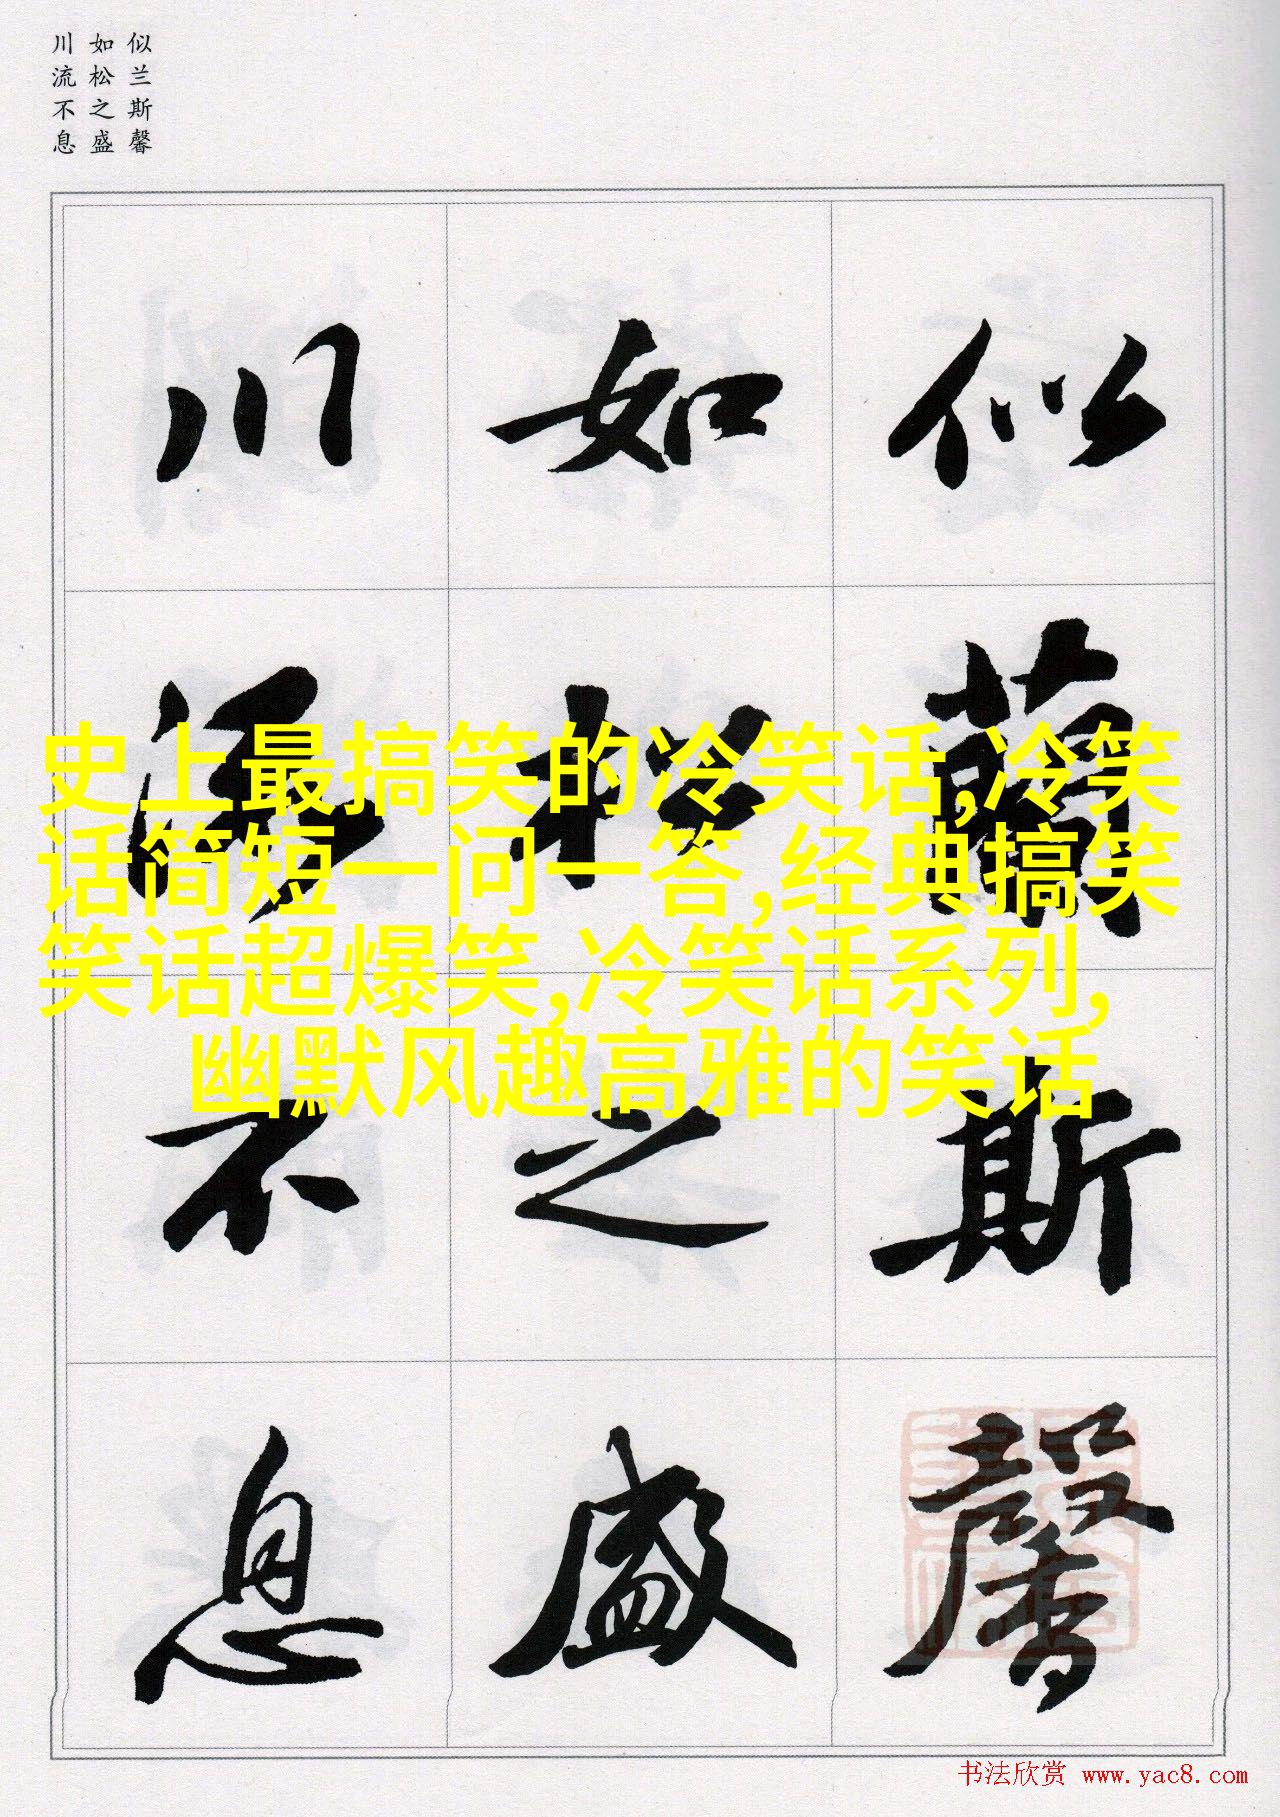 似兰斯馨
如松之盛
川流不息
似蘭斯馨
如松之盛
川流不息
史上最搞笑的冷笑话,冷笑
话简短一问一答,经典搞笑
笑话超爆笑,冷笑话系列,
幽默风趣高雅的笑话
书法欣赏 www.yac8.com